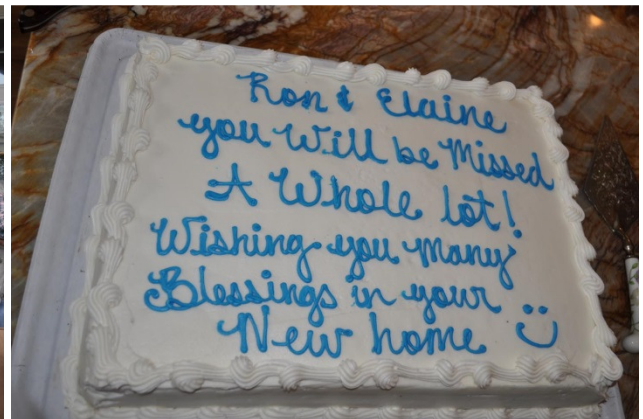 Ron & Elaine
you Will be Missed
A Whole lot!
Wishing you many
Blessings in your
New home